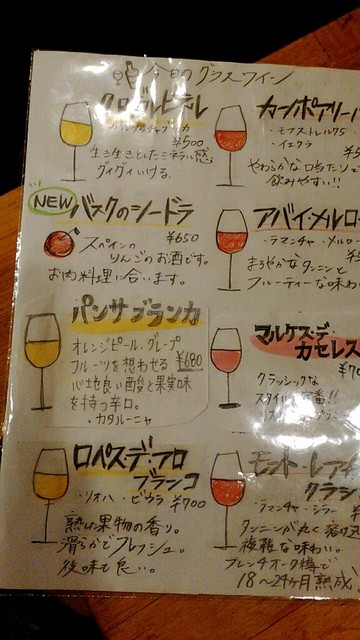 今日のグラスワイン
¥500
生き生きとしたミネラル感
グイグイいける。
NEW
バスクのシードラ
スペインの ¥650
りんごのお酒です。
お肉料理に合います。
パンサブランカ
オレンジピール、グレープ
フルーツを想わせる ¥680
心地良い酸と果実味
を持つ辛口。
・カタルーニャ
ロペス・デ・アロ
ブランコ
・リオハ ・ビウラ ¥700
熟した果物の香り。
滑らかでフレッシュ。
後味も良い。
カーサポアリー
・モナストレル75
・イエクラ
やわらかな口当たりで
飲みやすい!!
アバイ・メルロー
・ラマンチャ ・メルロー
まろやかなタンニンと
フルーティーな味わい
マルケス・デ・
カセレス
クラッシックな
スタイル
モント・レアル
クラシ
・ラマンチャ ・シラー
タンニンが丸く溶け込
複雑な味わい。
フレンチオーク樽で
18〜24ヶ月熟成